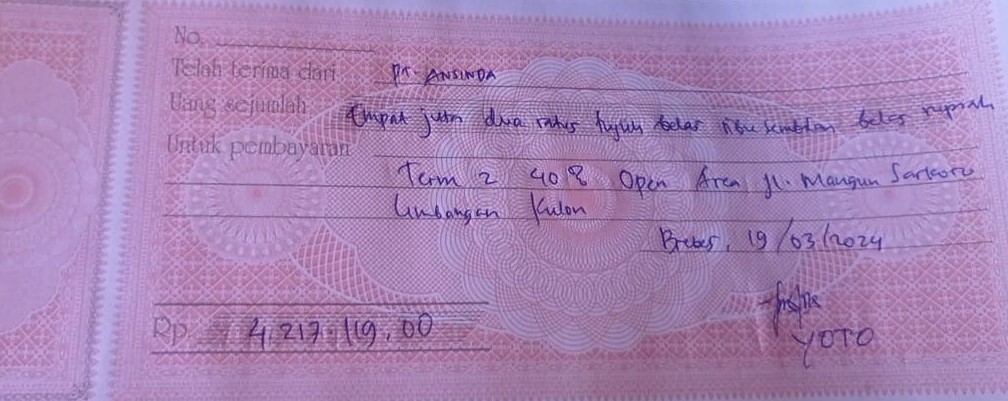 No.
Telah terima dari PT. ANSINDA
Uang sejumlah Empat juta dua ratus tujuh belas ribu sembilan belas rupiah
Untuk pembayaran
Term 2 40% Open Area Jl. Mangun Sarkoro
Limbangan Kulon
Brebes, 19/03/2024
Rp. 4.217.119,00
YOTO